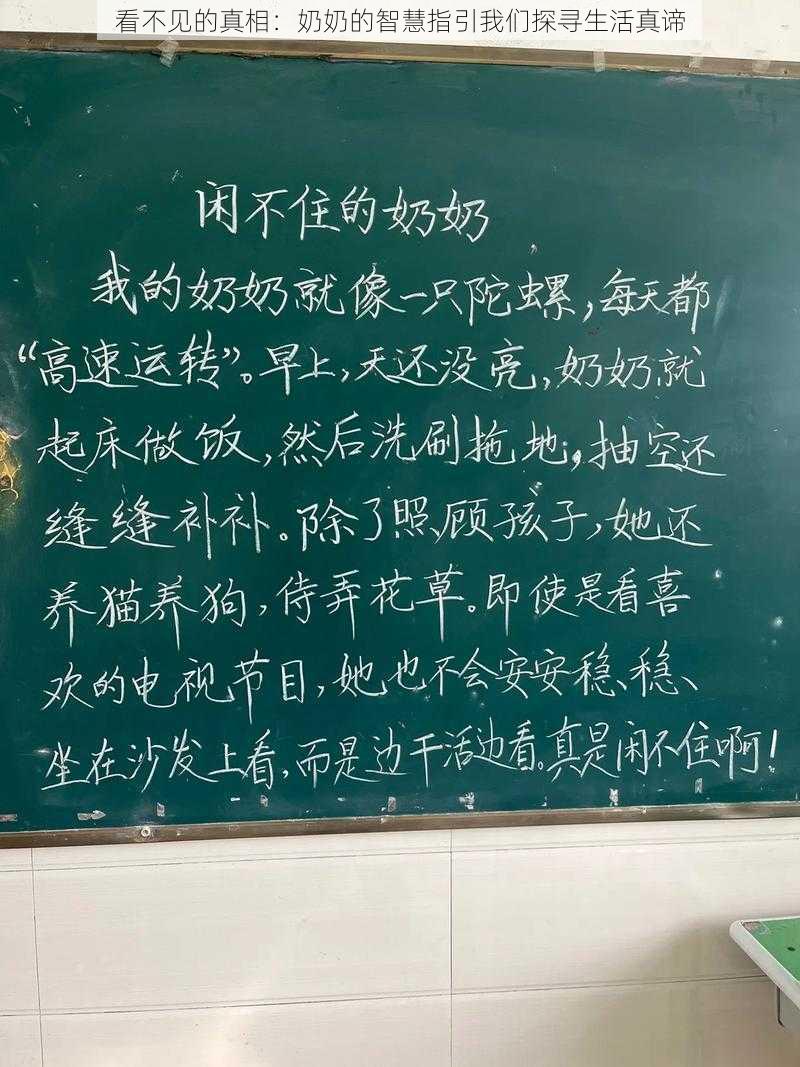 看不见的真相：奶奶的智慧指引我们探寻生活真谛
闲不住的奶奶
我的奶奶就像一只陀螺，每天都
“高速运转”。早上，天还没亮，奶奶就
起床做饭，然后洗刷拖地，抽空还
缝缝补补。除了照顾孩子，她还
养猫养狗，侍弄花草。即使是看喜
欢的电视节目，她也不会安安稳、稳、
坐在沙发上看，而是边干活边看。真是闲不住啊！